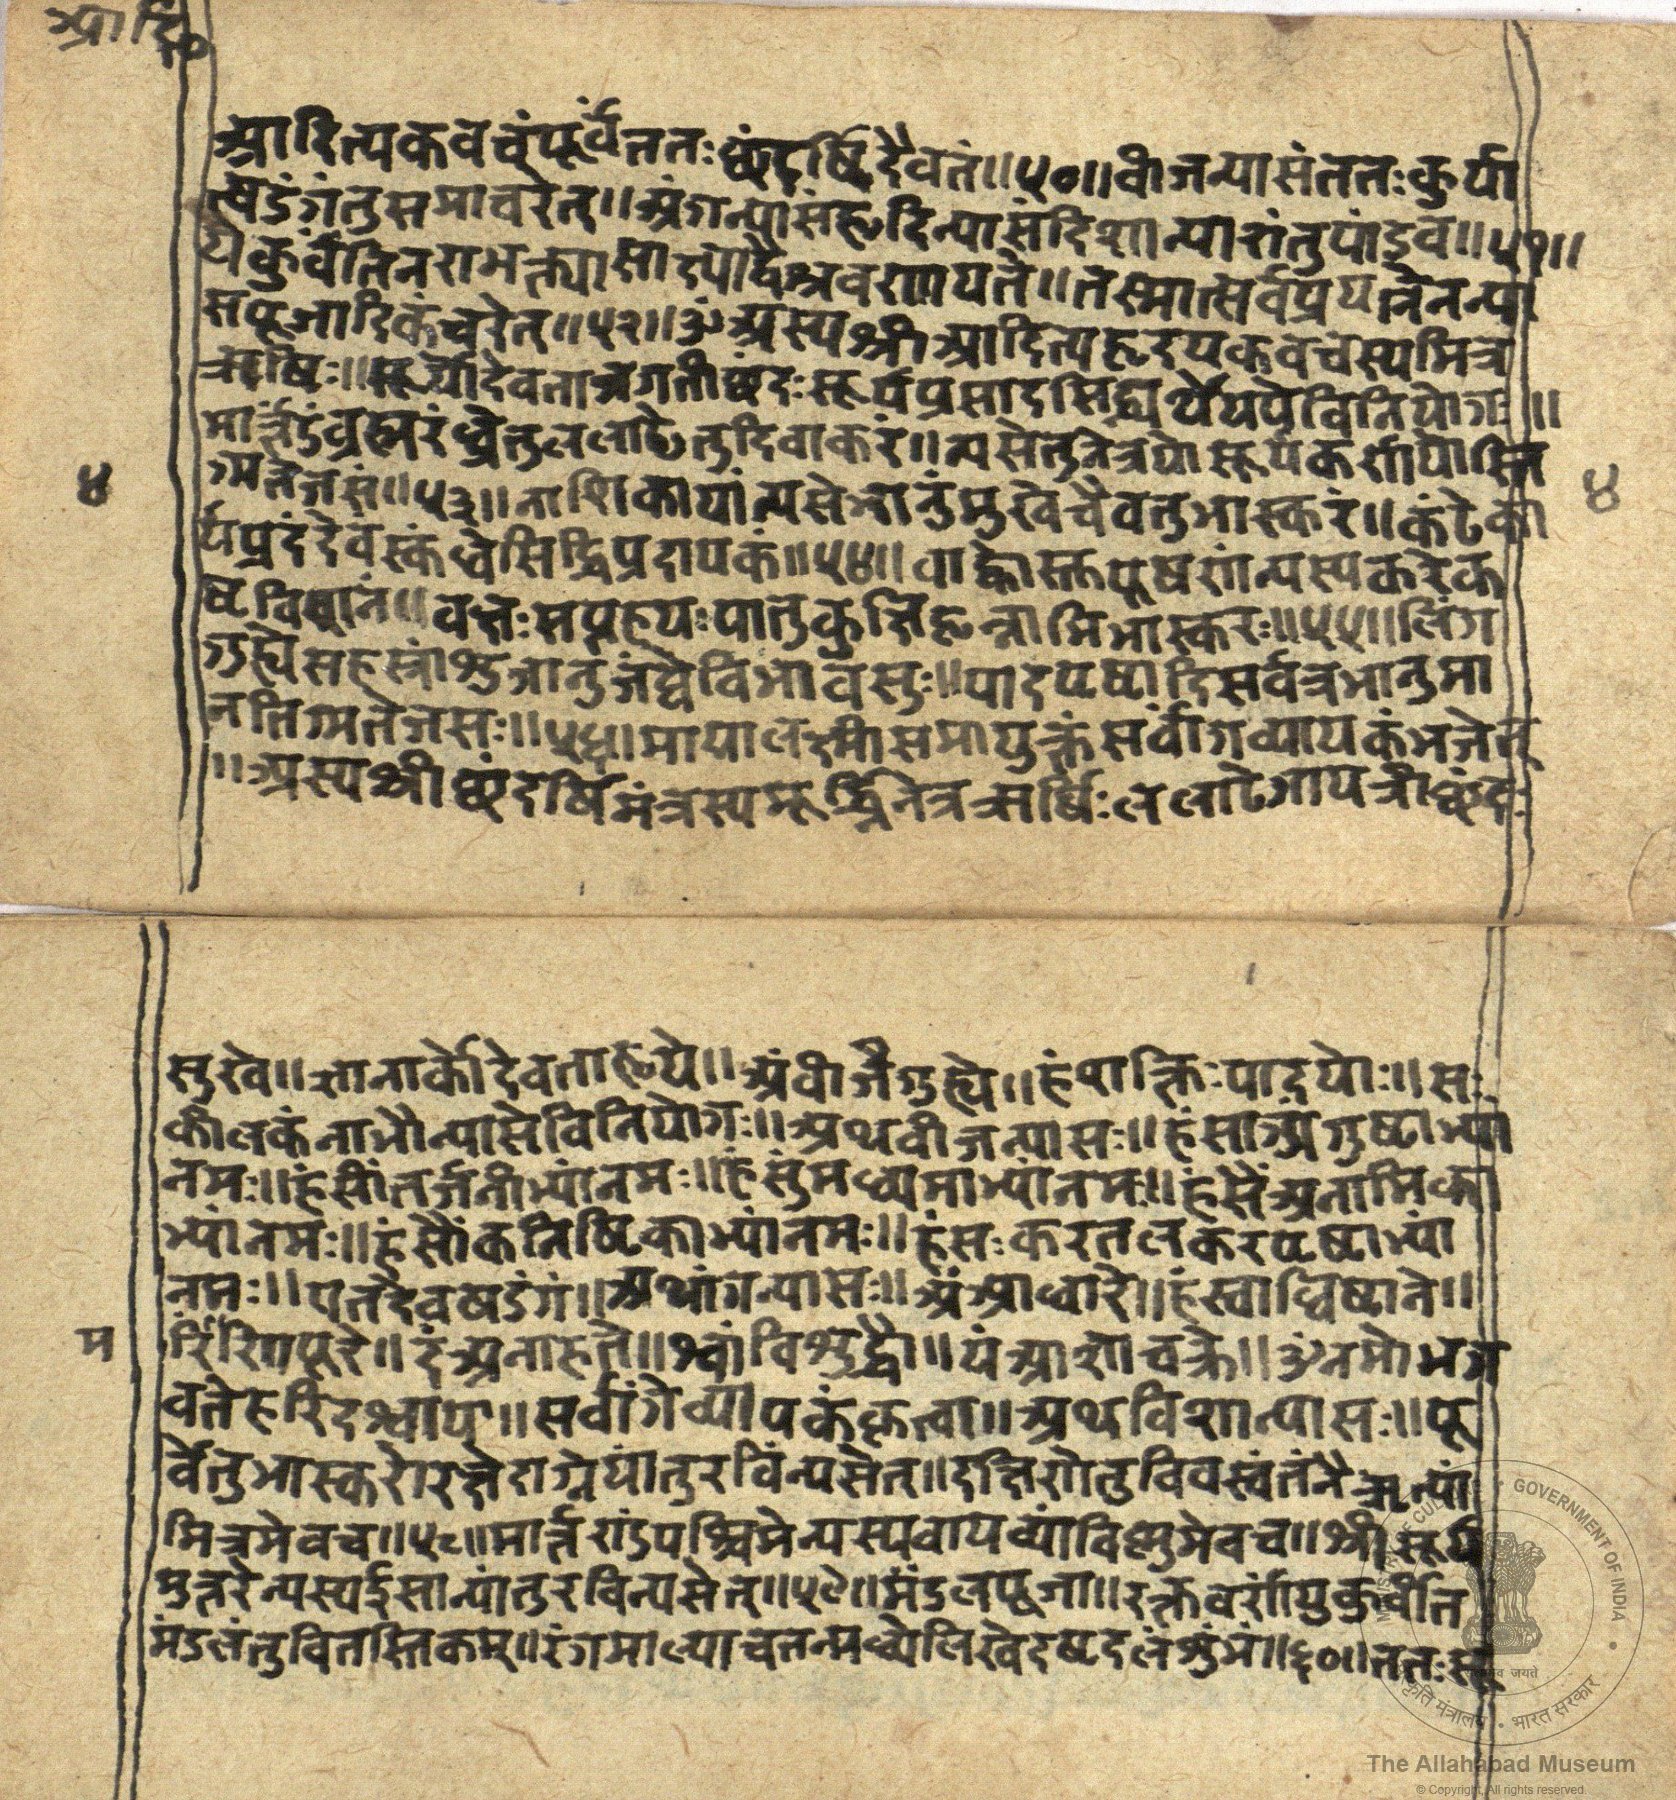 आदि०
आदित्यकवचंपूर्वंततःछंदर्षिदैवतं॥५०॥वीजन्यासंततःकुर्या
त्षडंगंतुसमाचरेत्॥अंगन्यासंहृदिन्यासंदिशान्यासंतुपांडव॥५१॥
येकुर्वंतिनराभक्त्यासाक्ष्याद्वैश्रवणायते॥तस्मात्सर्वप्रयत्नेनन्या
सपूजादिकंचरेत्॥५२॥ॐअस्यश्रीआदित्यहृदयकवचस्यमित्र
ऋषिः॥सूर्योदेवताजगतीछंदःसूर्यप्रसादसिद्ध्यर्थेयपेविनियोगः॥
मार्त्तंडंब्रह्मरंध्रेतुललाटेतुदिवाकरं॥न्यसेतुनेत्रयोसूर्यकर्णयोस्ति
४
ग्मतेजसं॥५३॥नाशिकायांन्यसेभानुंमुखेचैवतुभास्करं॥कंठेका
४
र्यप्रदंदेवस्कंधेसिद्धिप्रदायकं॥५४॥वाह्वोस्तपूषणंन्यस्यकरेक
ष्टविधानं॥वक्षःसप्तहयःपातुकुक्षिहृन्नाभिभास्करः॥५५॥लिंग
गुह्येसहस्त्रांशुजानुजंघेविभावसुः॥पादपृष्ठादिसर्वत्रभानुमा
नतिग्मतेजसः॥५६॥मायालक्ष्मीसमायुक्तंसर्वांगव्यायकंभजेत्
॥अस्यश्रीछंदर्षिमंत्रस्यमूर्द्ध्निनेत्रऋर्षिःललाटेगायत्रीछंदः
सुखे॥ज्ञानार्कोदेवताहृदये॥अंवीजंगुह्ये॥हंशक्तिःपादयोः॥सः
कीलकंनाभौन्यासेविनियोगः॥अथवीजन्यासः॥हंसांअंगुष्ठाभ्यां
नमः॥हंसींतर्जनीभ्यांनमः॥हंसुंमध्यमाभ्यांनमः॥हंसैंअनामिका
भ्यांनमः॥हंसौंकनिष्ठिकाभ्यांनमः॥हंसःकरतलकरपृष्ठाभ्यां
नमः॥एतदेवषडंगं॥अथांगन्यासः॥अंआधारे॥हंस्वाधिष्ठाने॥
म
रिंरिणपूरे॥दंअनाहते॥श्वांविशुद्धौ॥यंआज्ञाचक्रे॥ॐनमोभग
वतेहरिदश्वाय॥सर्वांगेव्यापकंकृत्वा॥अथविशान्यासः॥पू
र्वेतुभास्करोरक्षेदाग्नेयांतुरविंन्यसेत्॥दक्षिणेतुविवस्वंतंनैऋत्यां
मित्रमेवच॥५८॥मार्त्तंणडंपश्चिमेन्यस्यवायव्यांविष्णुमेवच॥श्रीसूर्य
मुत्तरेन्यस्यईसान्यांतुरविन्यसेत्॥५९॥मंडलपूजा॥रक्तवर्णायुकुर्वीत
मंडलंतुवितस्तिकम्॥रंगमाल्याचतन्मध्येलिखेदष्टदलंशुभं॥६०॥ततःसू
MINISTRY OF CULTURE • GOVERNMENT OF INDIA
सत्यमेव जयते
संस्कृति मंत्रालय • भारत सरकार
The Allahabad Museum
© Copyright, All rights reserved.